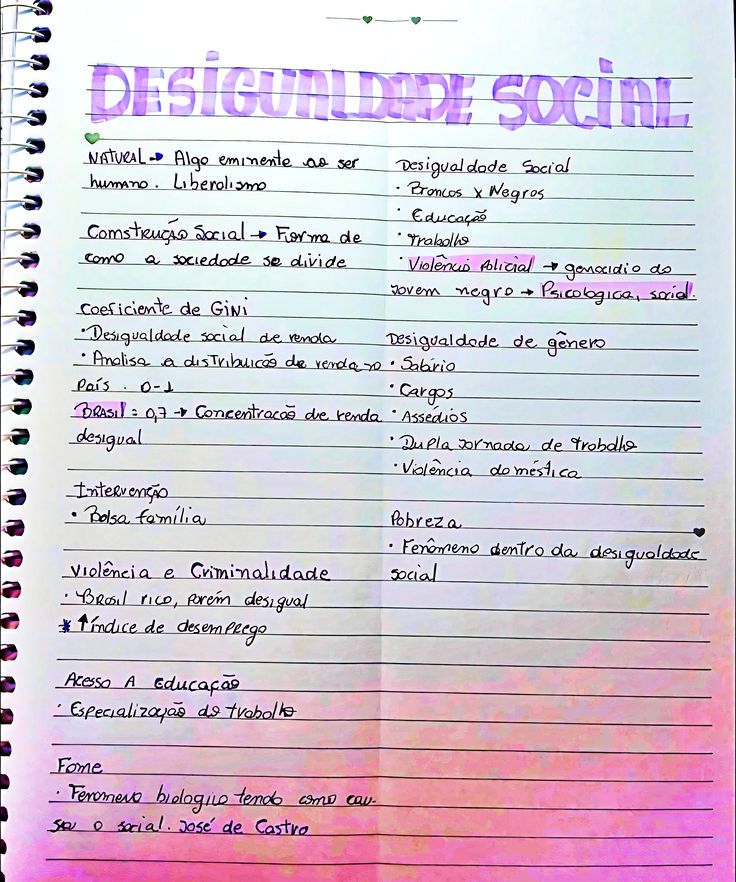 DESIGUALDADE SOCIAL
NATURAL → Algo eminente ao ser
humano. Liberalismo
Construção Social → Forma de
como a sociedade se divide
Coeficiente de Gini
· Desigualdade social de renda
· Analisa a distribuicão de renda no
País. 0-1
BRASIL = 0,7 → Concentracão de renda
desigual
Intervenção
· Bolsa família
Violência e Criminalidade
· Brasil rico, porém desigual
* ↑ índice de desemprego
Acesso A Educação
· Especialização do trabalho
Fome
· Fenomeno biologico tendo como cau-
sa o social. José de Castro
Desigualdade Social
· Brancos x Negros
· Educação
· Trabalho
· Violência Policial → genocidio do
Jovem negro → Psicologica, social.
Desigualdade de gênero
· Salário
· Cargos
· Assédios
· Dupla Jornada de trabalho
· Violência doméstica
Pobreza
· Fenômeno dentro da desigualdade
social